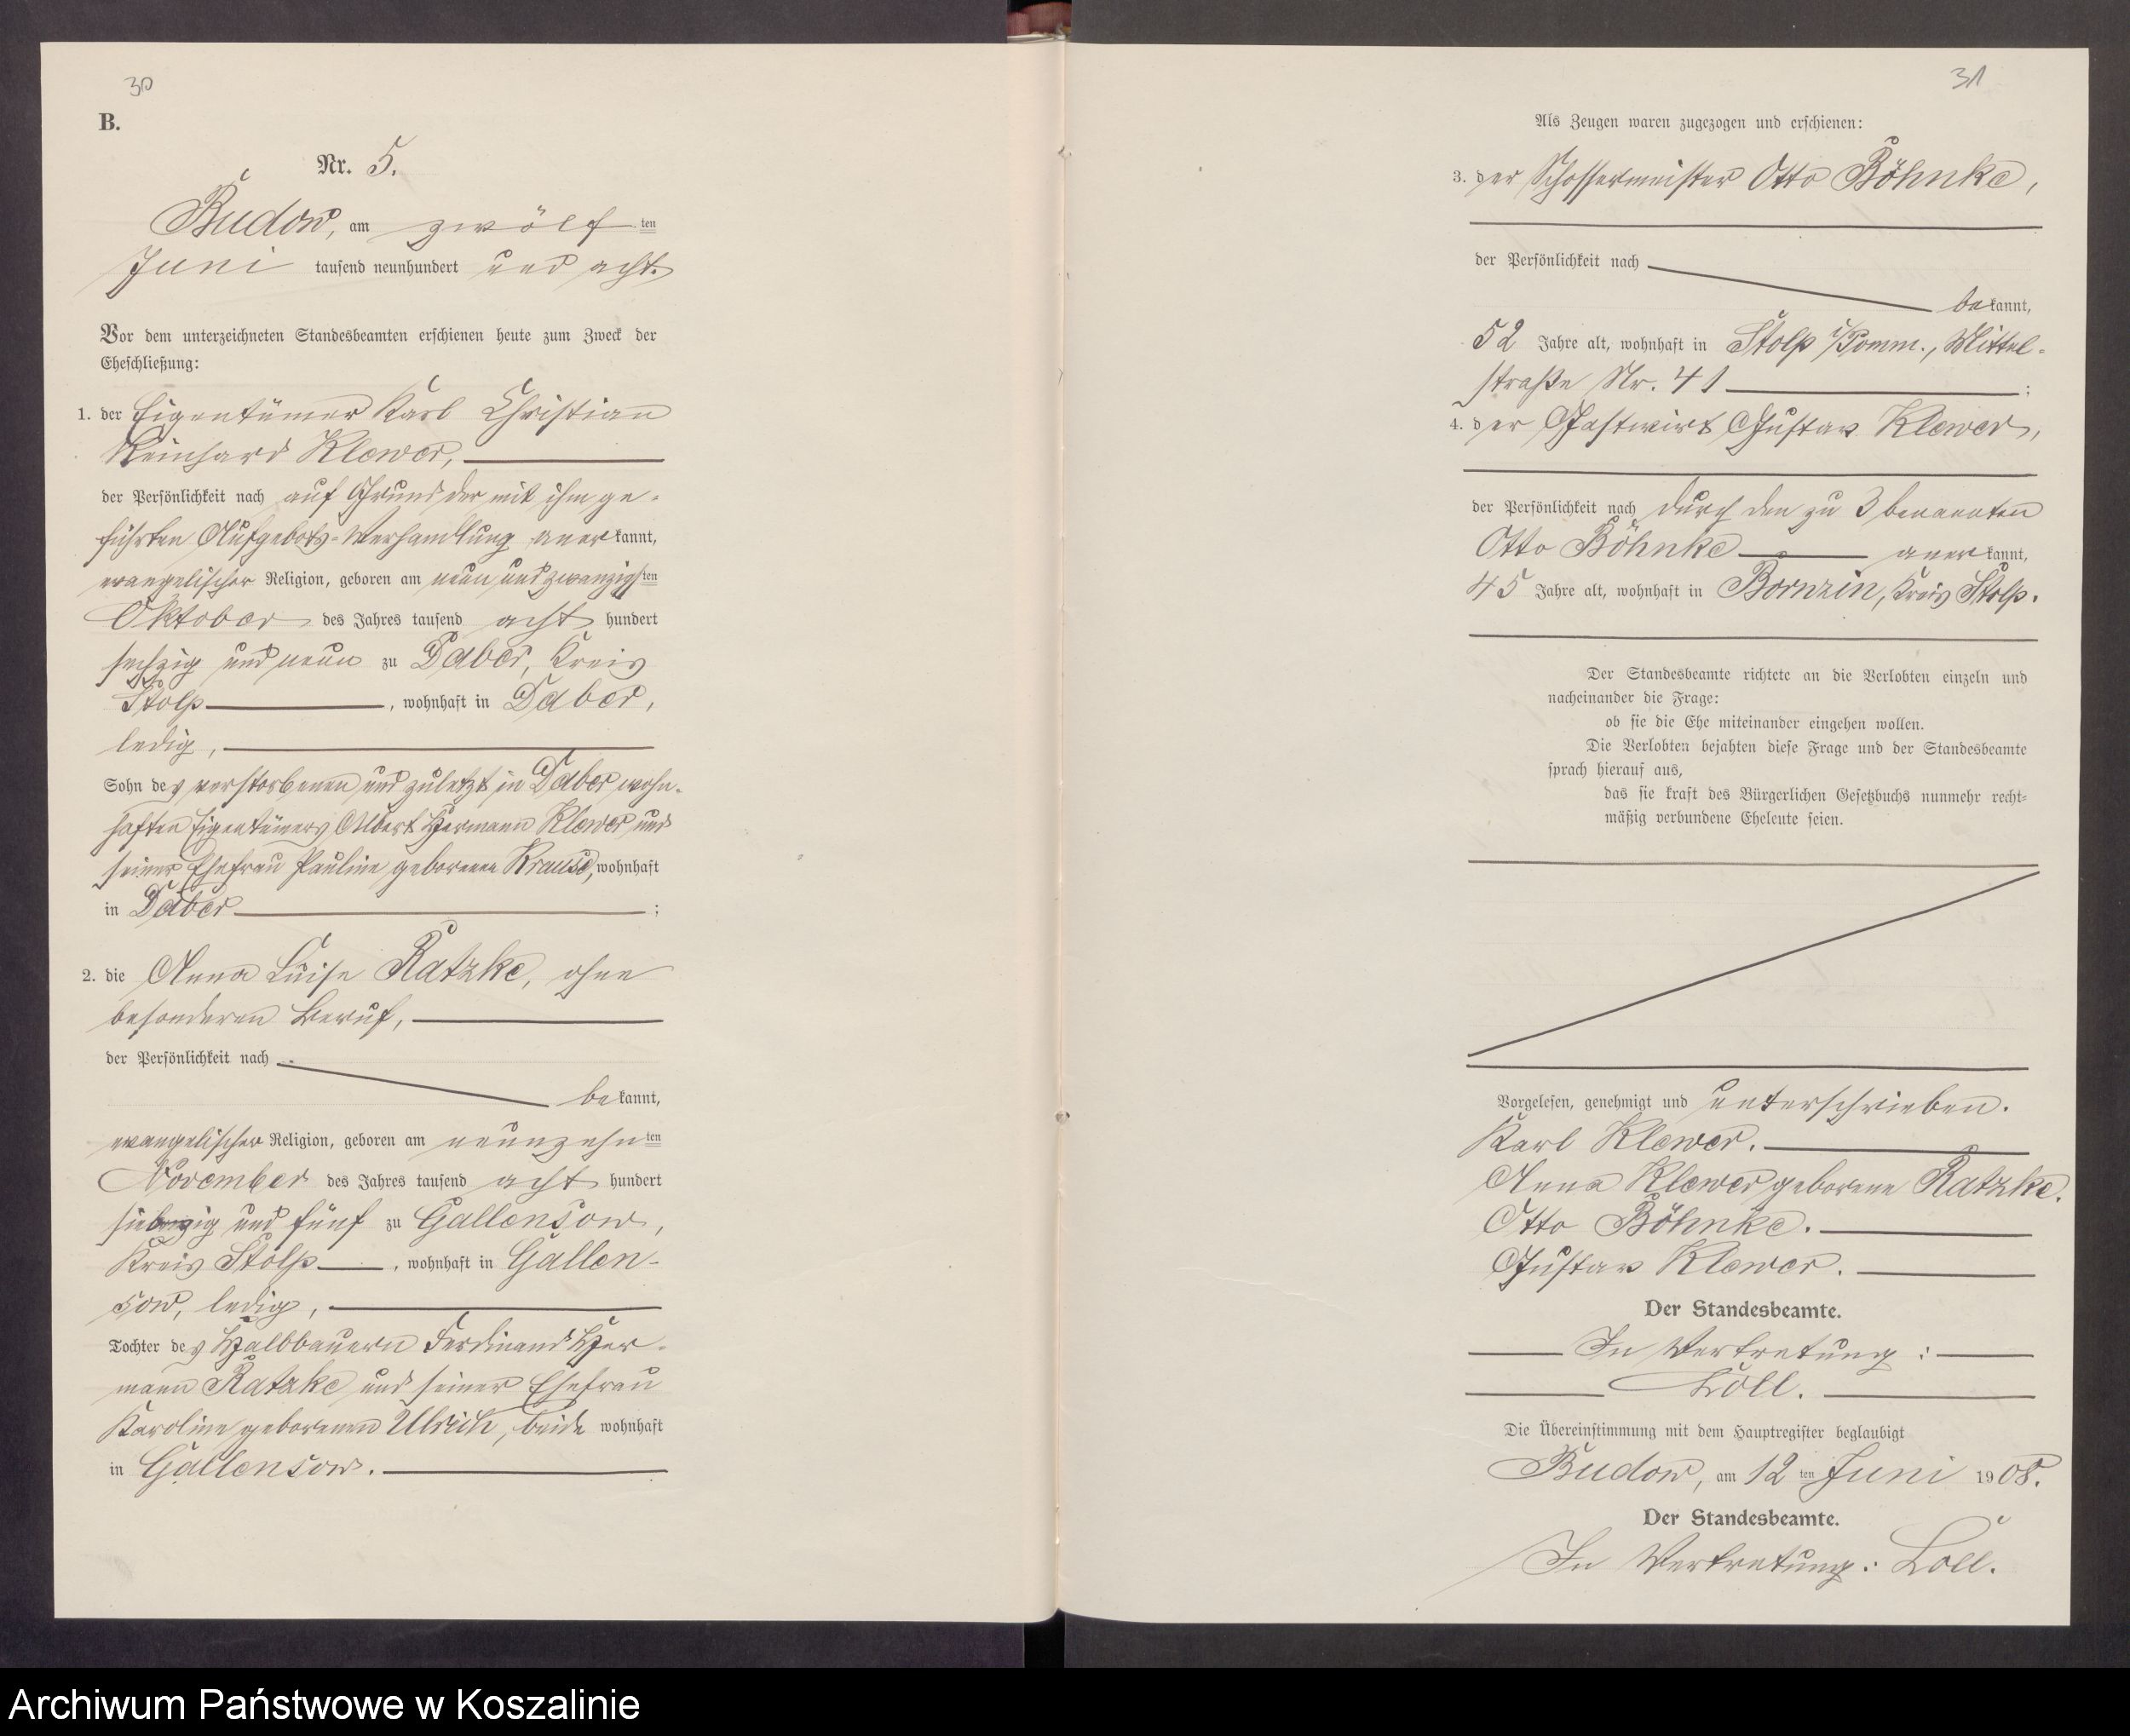 30
B.
Nr. 5.
Budow, am zwölf ten
Juni tausend neunhundert und acht.
Vor dem unterzeichneten Standesbeamten erschienen heute zum Zweck der
Eheschließung:
1. der Eigentümer Karl Christian
Reinhard Klewer,
der Persönlichkeit nach auf Grund der mit ihm ge-
führten Aufgebots-Verhandlung anerkannt,
evangelischer Religion, geboren am neun und zwanzigsten
Oktober des Jahres tausend acht hundert
sechzig und neun zu Daber, Kreis
Stolp, wohnhaft in Daber,
ledig,
Sohn des verstorbenen und zuletzt in Daber wohn-
haften Eigentümers Albert Hermann Klewer und
seiner Ehefrau Pauline geborenen Krause, wohnhaft
in Daber;
2. die Anna Luise Ratzke, ohne
besonderen Beruf,
der Persönlichkeit nach
bekannt,
evangelischer Religion, geboren am neunzehnten
November des Jahres tausend acht hundert
siebenzig und fünf zu Gallensow,
Kreis Stolp, wohnhaft in Gallen-
sow, ledig,
Tochter des Halbbauern Ferdinand Her-
mann Ratzke und seiner Ehefrau
Karoline geborenen Ulrich, beide wohnhaft
in Gallensow.
31
Als Zeugen waren zugezogen und erschienen:
3. der Schossermeister Otto Böhnke,
der Persönlichkeit nach
bekannt,
52 Jahre alt, wohnhaft in Stolp i/Pomm., Mittel-
straße Nr. 41;
4. der Gastwirt Gustav Klewer,
der Persönlichkeit nach durch den zu 3 benannten
Otto Böhnke anerkannt,
45 Jahre alt, wohnhaft in Bornzin, Kreis Stolp.
Der Standesbeamte richtete an die Verlobten einzeln und
nacheinander die Frage:
ob sie die Ehe miteinander eingehen wollen.
Die Verlobten bejahten diese Frage und der Standesbeamte
sprach hierauf aus,
das sie kraft des Bürgerlichen Gesetzbuchs nunmehr recht-
mäßig verbundene Eheleute seien.
Vorgelesen, genehmigt und unterschrieben.
Karl Klewer.
Anna Klewer geborene Ratzke.
Otto Böhnke.
Gustav Klewer.
Der Standesbeamte.
In Vertretung:
Loll.
Die Übereinstimmung mit dem Hauptregister beglaubigt
Budow, am 12 ten Juni 1908.
Der Standesbeamte.
In Vertretung: Loll.
Archiwum Państwowe w Koszalinie